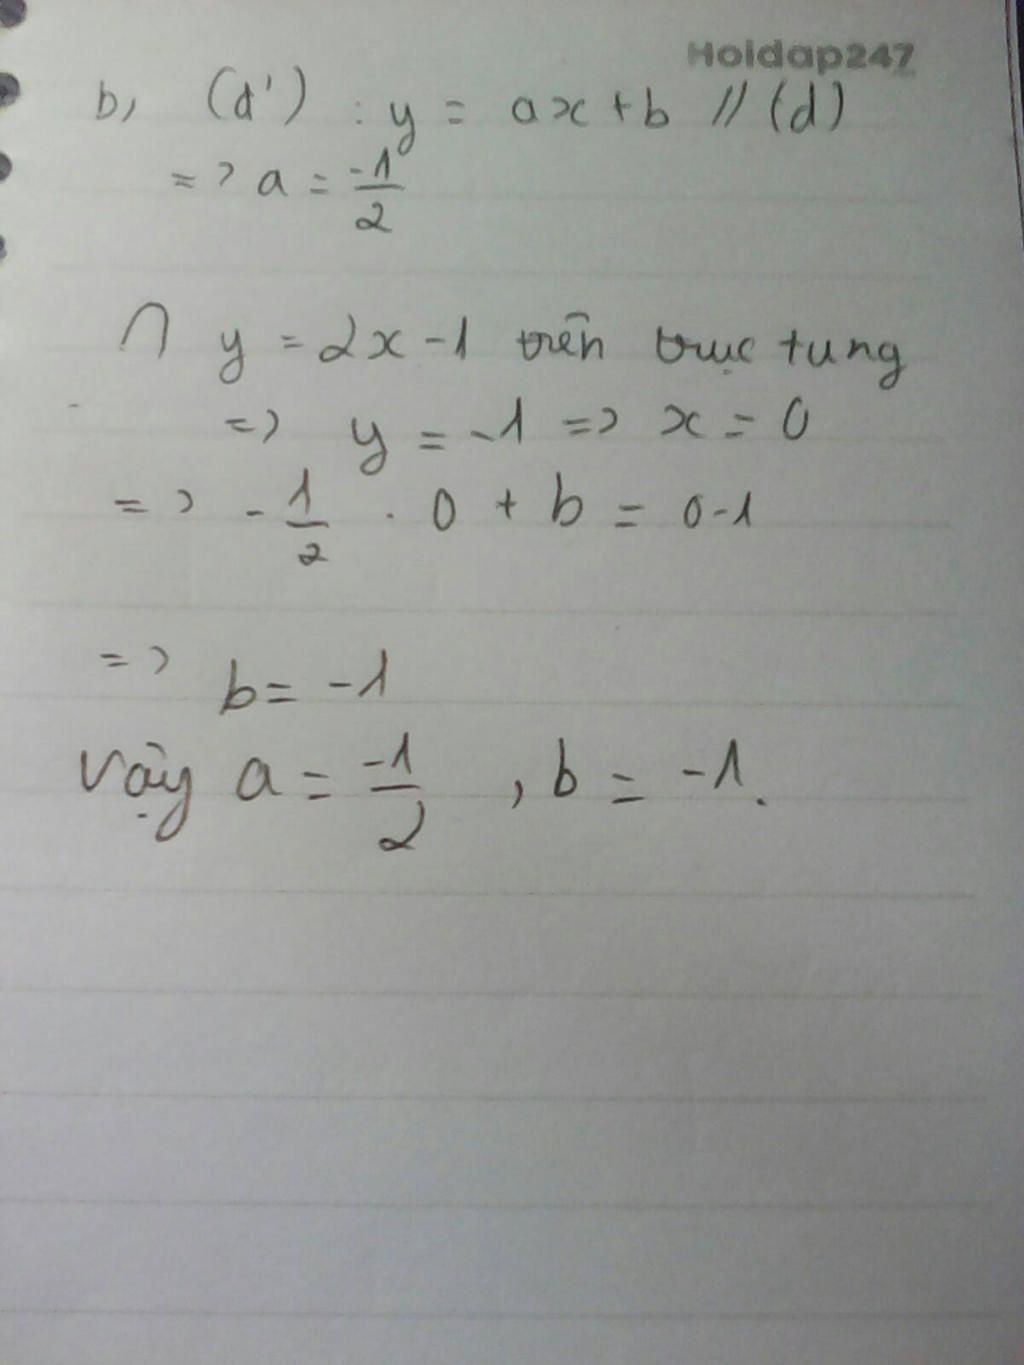 Hoidap247
b, (d') : y = ax + b // (d)
=> a = -1/2
∩ y = 2x - 1 trên trục tung
=> y = -1 => x = 0
=> - 1/2 . 0 + b = 0 - 1
=> b = -1
Vậy a = -1/2 , b = -1.